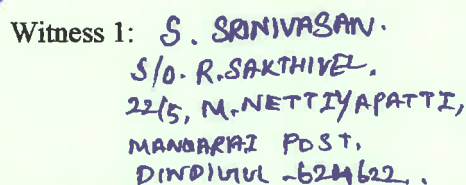 Witness 1: S. SRINIVASAN.
S/O. R. SAKTHIVEL,
22/5, M. NETTIYAPATTI,
MANGARAI POST.
DINDIGUL - 624622.